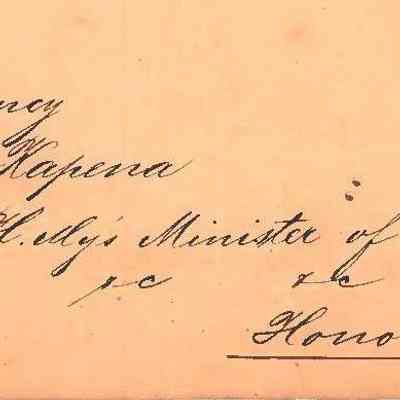 ncy
Kapena
H. My's Minister of
&c &c
Hono